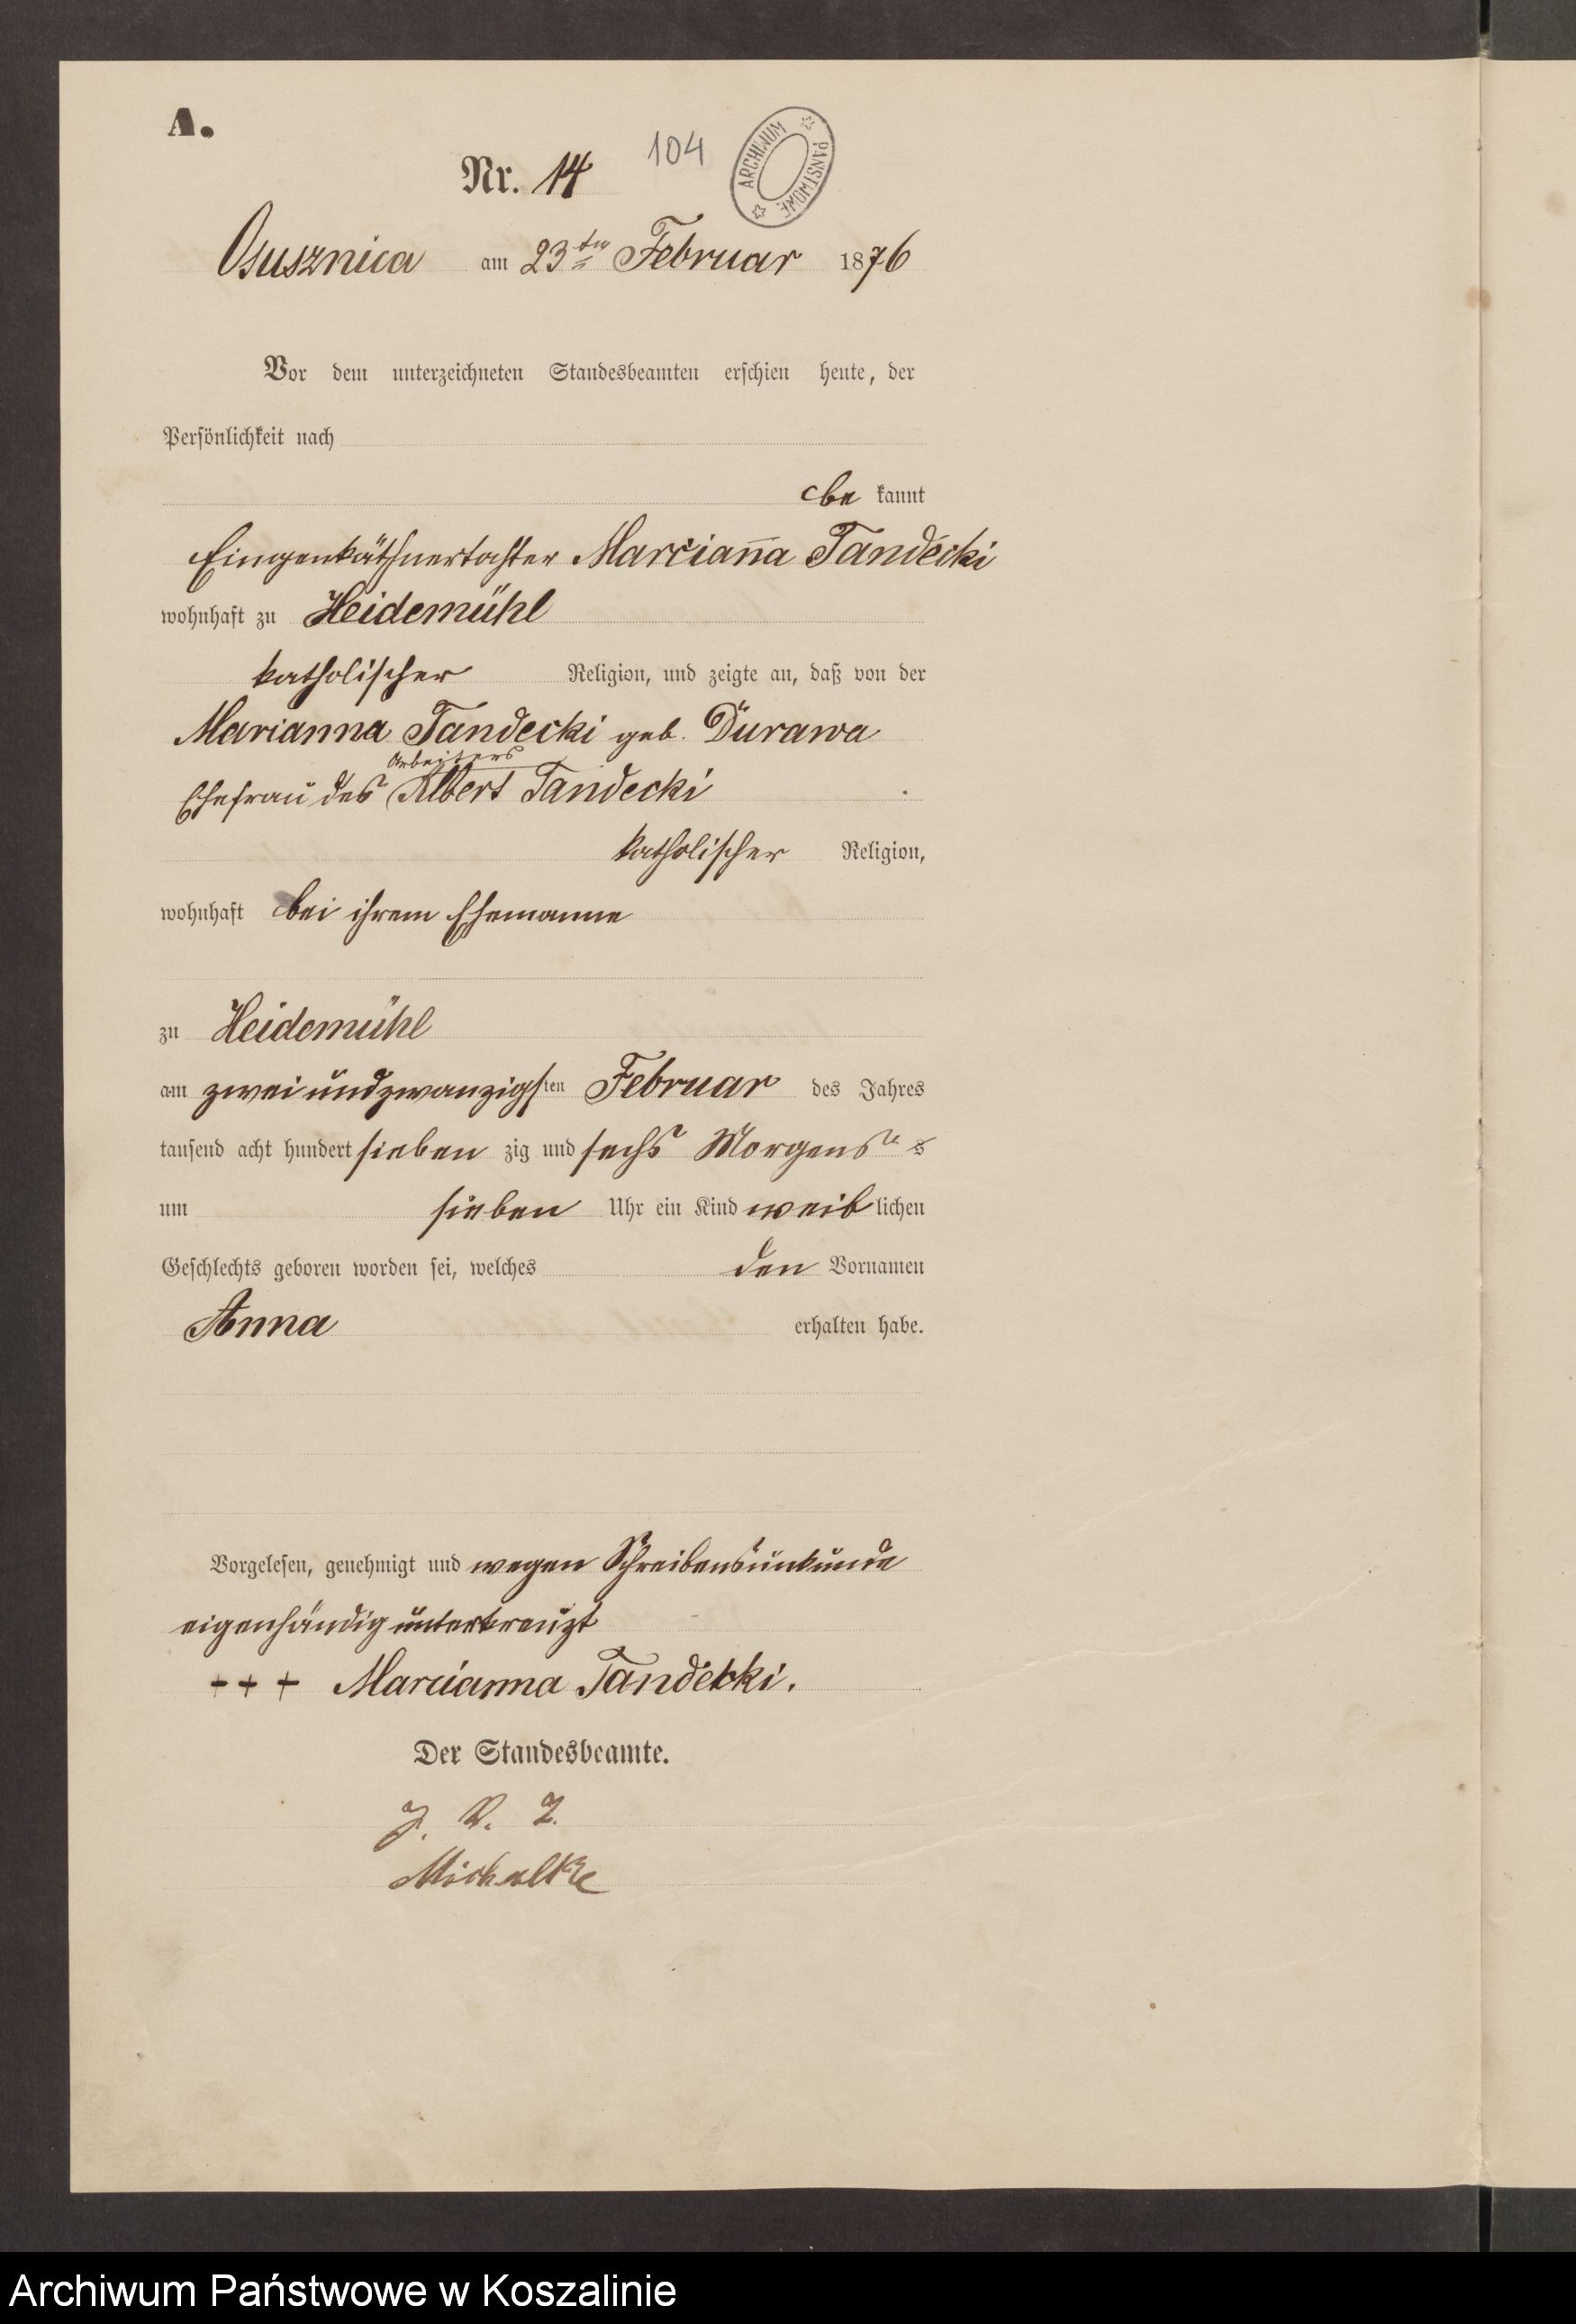 A.
Nr. 14
104
ARCHIWUM PAŃSTWOWE
Osusznica am 23ten Februar 1876
Vor dem unterzeichneten Standesbeamten erschien heute, der
Persönlichkeit nach
be kannt
Eingenkäthnertochter Marcianna Tandecki
wohnhaft zu Heidemühl
katholischer Religion, und zeigte an, daß von der
Marianna Tandecki geb. Durawa
Arbeiters
Ehefrau des Albert Tandecki
katholischer Religion,
wohnhaft bei ihrem Ehemanne
zu Heidemühl
am zwei und zwanzigsten Februar des Jahres
tausend acht hundert sieben zig und sechs Morgens
um sieben Uhr ein Kind weib lichen
Geschlechts geboren worden sei, welches den Vornamen
Anna erhalten habe.
Vorgelesen, genehmigt und wegen Schreibensunkunde
eigenhändig unterkreuzt
+ + + Marcianna Tandecki.
Der Standesbeamte.
J. V.
Michalke
Archiwum Państwowe w Koszalinie